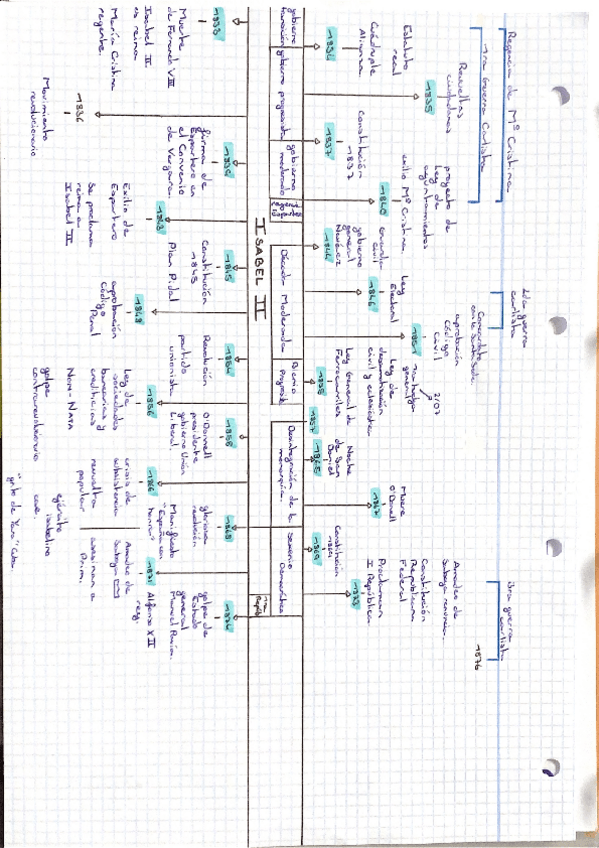 Regencia de Mª Cristina
1ra Guerra Carlista
2da guerra
carlista
3ra guerra
carlista
1876
1834
Estatuto
real
Cuádruple
Alianza
1835
Revueltas
ciudadanas
1837
Constitución
1837
1840
proyecto de
Ley de
ayuntamientos
exilio Mª Cristina
1844
guardia
civil
gobierno
general
Narváez
1846
Ley
Electoral
1851
Concordato
con la Santa Sede
aprobación
Código
Civil
1855
Ley de
desamortización
civil y eclesiástica
Ley General de
Ferrocarriles
1857
1865
Noche
de San
Daniel
1867
Muere
O'Donell
1869
Constitución
1869
1873
Amadeo de
Saboya renuncia.
Constitución
Republicana
Federal
Proclamación
I República
gobierno
transición
gobierno progresista
gobierno
moderado
ISABEL II
Década Moderada
Bienio
Progresista
Desintegración de la
monarquía
Sexenio
Democrático
1833
Muerte
de Fernando VII
Isabel II
es reina
María Cristina
regente.
1836
Movimiento
revolucionario
1839
firma de
Espartero en
el Convenio
de Vergara.
1843
Exilio de
Espartero
Se proclama
reina a
Isabel II
1845
Constitución
1845
Plan Pidal
1848
aprobación
Código
Penal
1854
Revolución
partido
unionista
1856
Ley de
sociedades
bancarias y
crediticias
Non-Nata
golpe
contrarrevolucionario
1858
O'Donnell
presidente
gobierno Unión
Liberal.
1866
crisis de
subsistencia
revuelta
popular
1868
gloriosa
revolución
Manifiesto
"España con
honra"
ejército
isabelino
cae.
"grito de Yara" Cuba
1871
Amadeo de
Saboya
rey.
asesinan a
Prim.
1874
golpe de
Estado
general
Manuel Pavía.
Alfonso XII